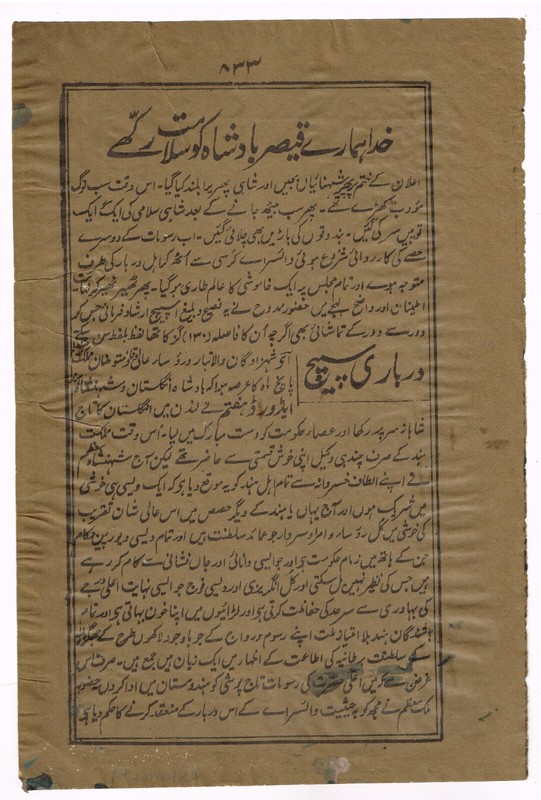 ۸۳۳
خدا ہمارے قیصر بادشاہ کو سلامت رکھے
اعلان کے ختم پر پھر شہنائیاں بجیں اور شاہی پھریرا بلند کیا گیا۔ اس وقت سب لوگ
مؤدب کھڑے تھے۔ پھر سب بیٹھ جانے کے بعد شاہی سلامی کی ایکسو ایک
توپیں سر کی گئیں۔ بندوقوں کی باڑیں بھی چلائی گئیں۔ اب رسومات کے دوسرے
حصے کی کارروائی شروع ہوئی وائسراے کرسی سے اٹھکر اہل دربار کی طرف
متوجہ ہوے اور تمام مجلس پر ایک خاموشی کا عالم طاری ہو گیا۔ پھر ٹھیر ٹھیر کر
اطمینان اور واضح لہجے میں حضور ممدوح نے یہ فصیح و بلیغ اسپیچ ارشاد فرمائی جس کو
دور سے دور کے تماشائی بھی اگرچہ اُن کا فاصلہ (۱۳۰) گز کا تھا لفظ بلفظ سن سکے
درباری سپیچ
آنو شہزادگان والا تبار و رؤسار عالی
پانچ ماہ کا عرصہ ہوا کہ بادشاہ انگلستان و شہنشاہ
ایڈورڈ ہفتم نے لندن میں انگلستان کا تاج
شاہانہ سر پر رکھا اور عصاے حکومت کو دست مبارک میں لیا۔ اُس وقت مملکت
ہند کے صرف چند ہی وکیل اپنی خوش قسمتی سے حاضر تھے لیکن آج شہنشاہ معظم
نے اپنے الطاف خسروانہ سے تمام اہل ہند کو یہ موقع دیا ہے کہ ایک ویسی ہی خوشی
میں شریک ہوں اور آج یہاں یا ہند کے دیگر حصص میں اس عالی شان تقریب
کی خوشی میں کل رؤسار و امرا و سردار جو عمائد سلطنت ہیں اور تمام دیسی و یورپین حکام
جن کے ہاتھ میں زمام حکومت ہی اور جو ایسی دانائی اور جاں فشانی سے کام کر رہے
ہیں جس کی نظیر نہیں مل سکتی اور کل انگریزی اور دیسی فوج جو ایسی نہایت اعلیٰ درجے
کی بہادری سے سرحد کی حفاظت کرتی ہی اور لڑائیوں میں اپنا خون بہاتی ہی اور تمام
باشندگان ہند بلا امتیاز ملت اپنے رسوم و رواج کے جو باوجود لاکھوں طرح کے
کے سلطنت برطانیہ کی اطاعت کے اظہار میں ایک زبان ہیں جمع ہیں۔ صرف اس
غرض سے کہ میں اعلیٰ حضرت کی رسومات تاج پوشی کو ہندوستان میں ادا کروں حضور
ملک معظم نے مجھ کو بہ حیثیت وائسراے کے اس دربار کے منعقد کرنے کا حکم دیا ہے